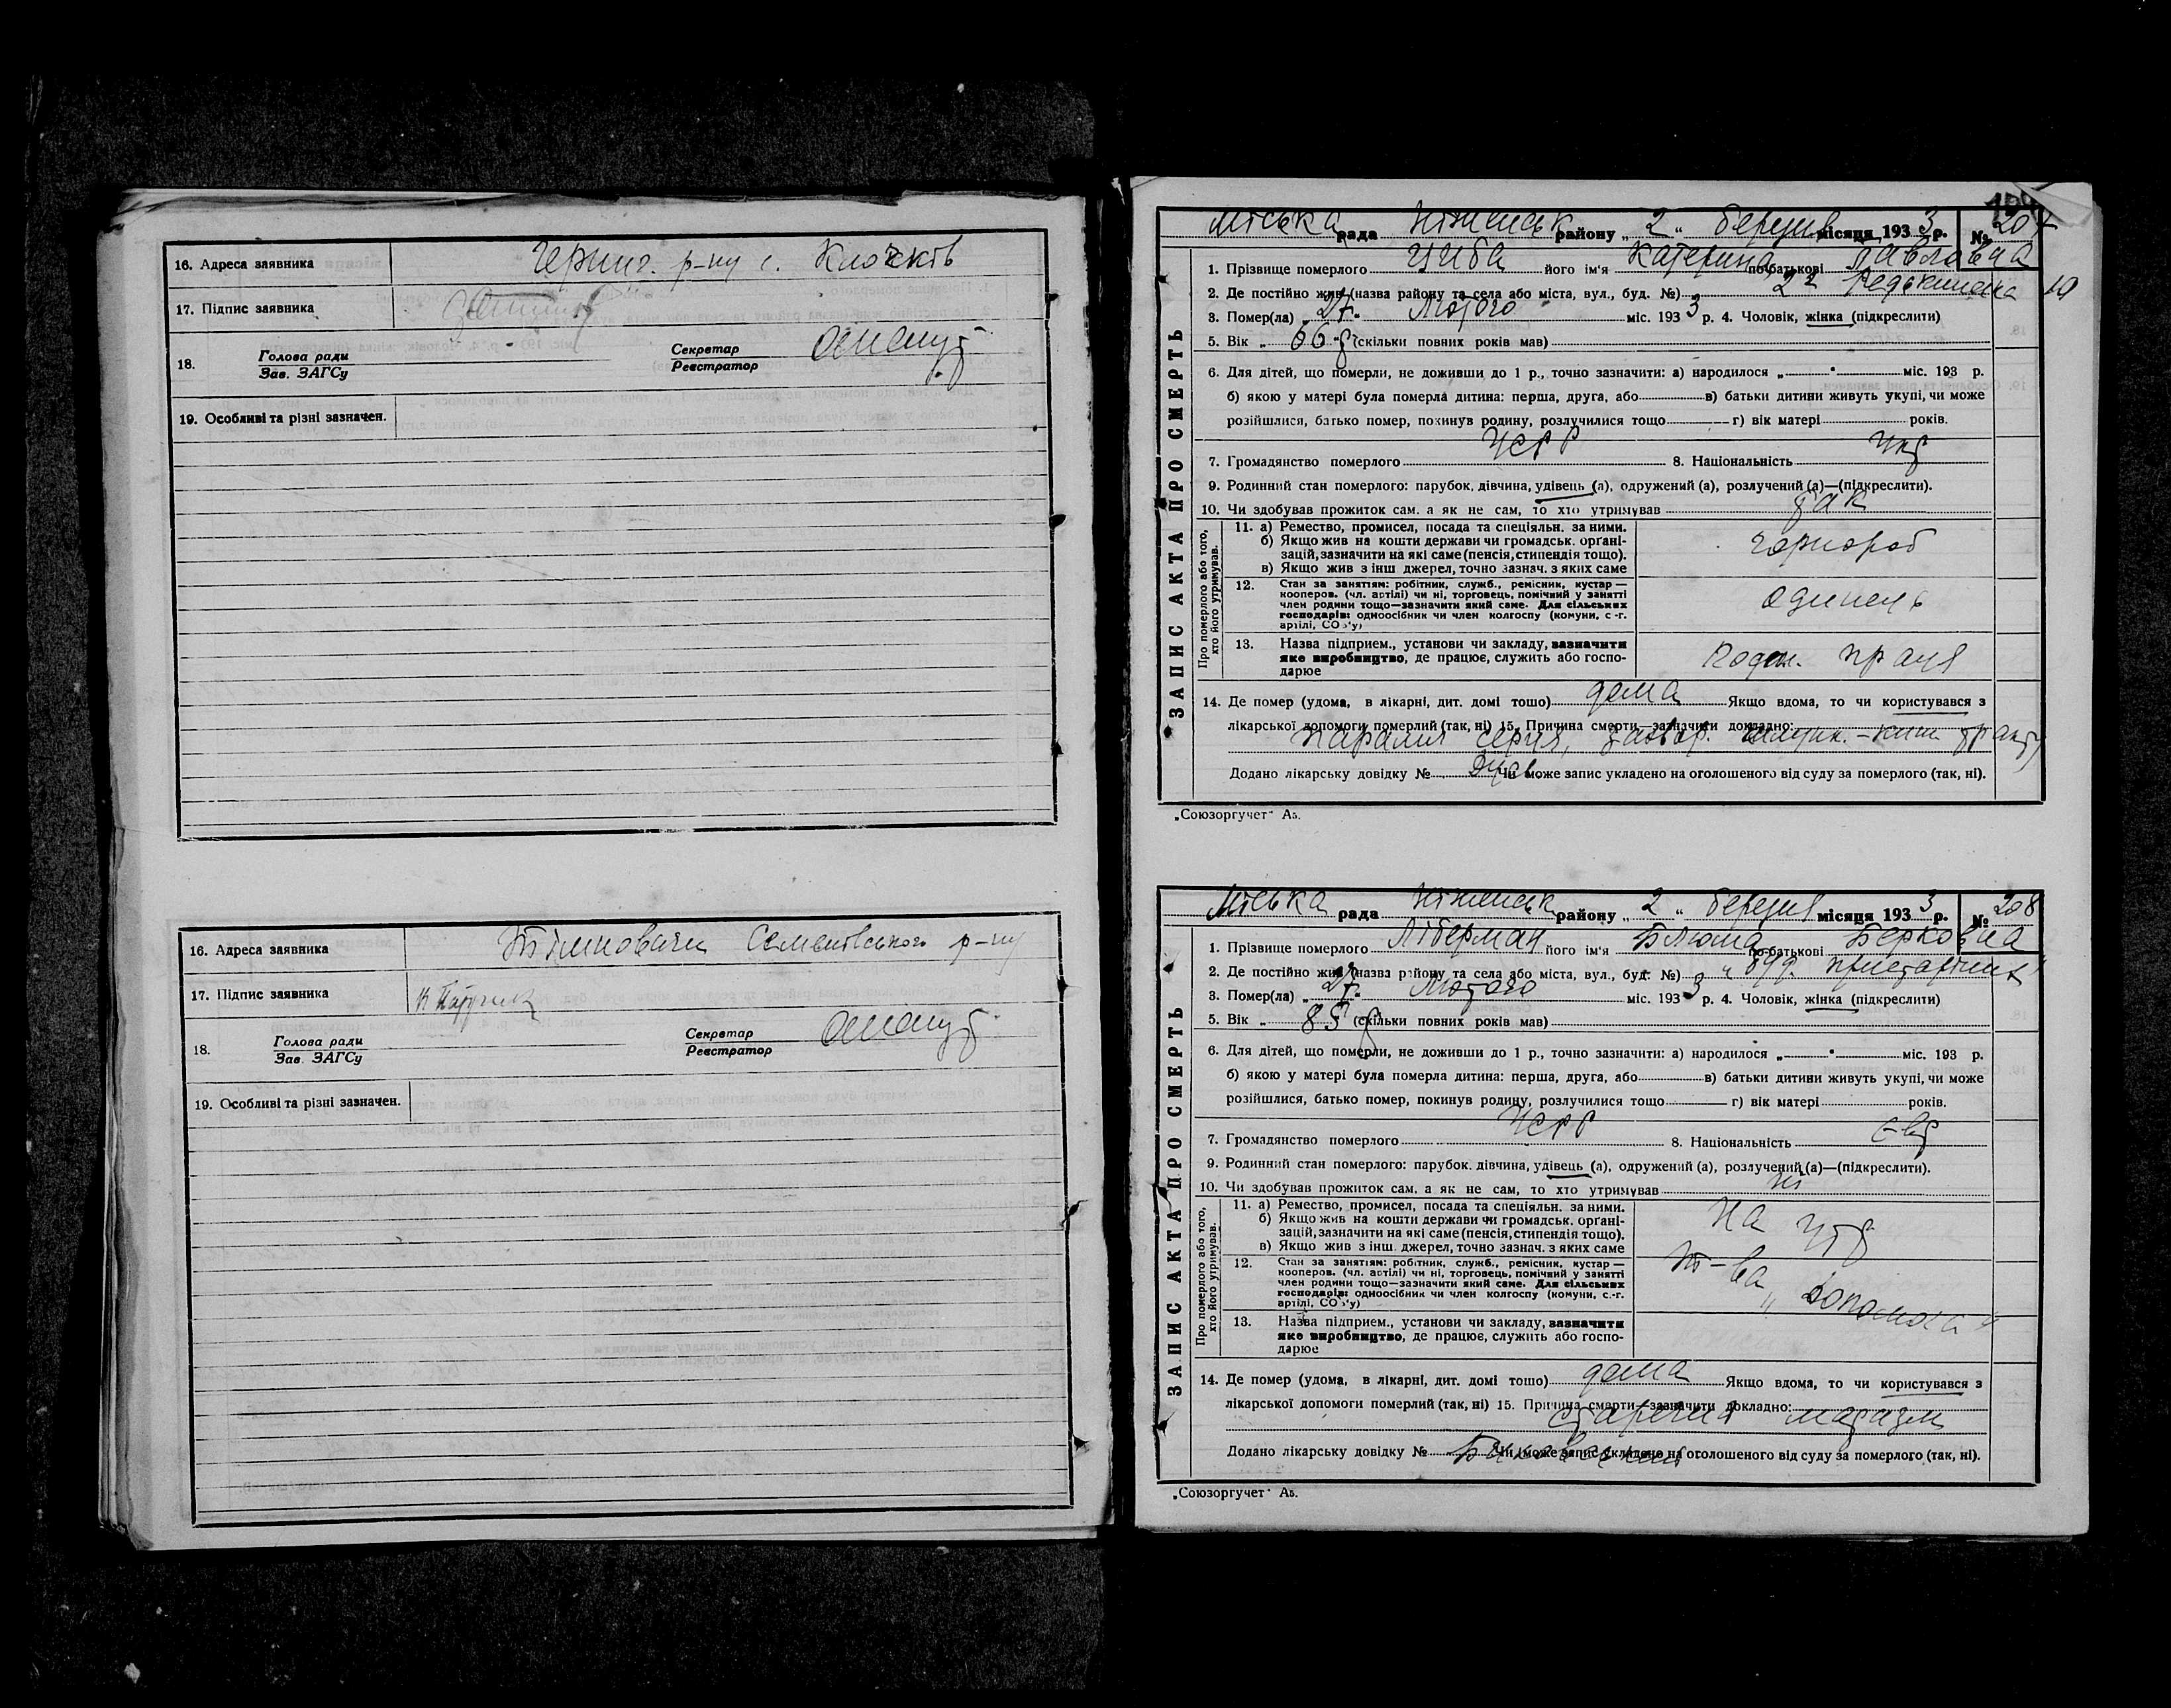 16. Адреса заявника Черниг. р-ну с. Клочків
17. Підпис заявника
18. Голова ради
Зав. ЗАГСу
Секретар
Реєстратор
19. Особливі та різні зазначен.
16. Адреса заявника Семенівського р-ну
17. Підпис заявника
18. Голова ради
Зав. ЗАГСу
Секретар
Реєстратор
19. Особливі та різні зазначен.
ЗАПИС АКТА ПРО СМЕРТЬ
Міська рада Ніженськ району „ 2 " березня місяця 193 3 р. № 207
1. Прізвище померлого Циба його ім'я Катерина по батькові Павловна
2. Де постійно жив (назва району та села або міста, вул., буд. №)
3. Помер(ла) „ 27 " Лютого міс. 193 3 р. 4. Чоловік, жінка (підкреслити)
5. Вік „ 66 р (скільки повних років мав)
6. Для дітей, що померли, не доживши до 1 р., точно зазначити: а) народилося „ " міс. 193 р.
б) якою у матері була померла дитина: перша, друга, або в) батьки дитини живуть укупі, чи може
розійшлися, батько помер, покинув родину, розлучилися тощо г) вік матері років.
7. Громадянство померлого УСРР 8. Національність укр
9. Родинний стан померлого: парубок, дівчина, удівець (а), одружений (а), розлучений (а)—(підкреслити).
10. Чи здобував прожиток сам, а як не сам, то хто утримував так
Про померлого або того, хто його утримував.
11. а) Ремество, промисел, посада та спеціяльн. за ними.
б) Якщо жив на кошти держави чи громадськ. органі-
зацій, зазначити на які саме (пенсія, стипендія тощо).
в) Якщо жив з інш джерел, точно зазнач. з яких саме
чорнороб
12. Стан за заняттям: робітник, служб., ремісник, кустар—
кооперов. (чл. артілі) чи ні, торговець, помічний у занятті
член родини тощо—зазначити який саме. Для сільських
господарів: одноосібник чи член колгоспу (комуни, с.-г.
артілі, СОЗ'у)
одинець
13. Назва підприєм., установи чи закладу, зазначити
яке виробництво, де працює, служить або госпо-
дарює
поден. праця
14. Де помер (удома, в лікарні, дит. домі тощо) дома Якщо вдома, то чи користувався з
лікарської допомоги померлий (так, ні) 15. Причина смерти—зазначити докладно:
Параліч серця,
Додано лікарську довідку № Чи може запис укладено на оголошеного від суду за померлого (так, ні).
„Союзоргучет" А5.
ЗАПИС АКТА ПРО СМЕРТЬ
Міська рада Ніженськ району „ 2 " березня місяця 193 3 р. № 208
1. Прізвище померлого Ліберман його ім'я Блюма по-батькові Берковна
2. Де постійно жив (назва району та села або міста, вул., буд. №)
3. Помер(ла) „ 27 " Лютого міс. 193 3 р. 4. Чоловік, жінка (підкреслити)
5. Вік „ 85 р (скільки повних років мав)
6. Для дітей, що померли, не доживши до 1 р., точно зазначити: а) народилося „ " міс. 193 р.
б) якою у матері була померла дитина: перша, друга, або в) батьки дитини живуть укупі, чи може
розійшлися, батько помер, покинув родину, розлучилися тощо г) вік матері років.
7. Громадянство померлого УСРР 8. Національність Євр
9. Родинний стан померлого: парубок, дівчина, удівець (а), одружений (а), розлучений (а)—(підкреслити).
10. Чи здобував прожиток сам, а як не сам, то хто утримував ні
Про померлого або того, хто його утримував.
11. а) Ремество, промисел, посада та спеціяльн. за ними.
б) Якщо жив на кошти держави чи громадськ. органі-
зацій, зазначити на які саме (пенсія, стипендія тощо).
в) Якщо жив з інш. джерел, точно зазнач. з яких саме
На утр
12. Стан за заняттям: робітник, служб., ремісник, кустар—
кооперов. (чл. артілі) чи ні, торговець, помічний у занятті
член родини тощо—зазначити який саме. Для сільських
господарів: одноосібник чи член колгоспу (комуни, с.-г.
артілі, СОЗ'у)
т-ва „Допомога"
13. Назва підприєм., установи чи закладу, зазначити
яке виробництво, де працює, служить або госпо-
дарює
14. Де помер (удома, в лікарні, дит. домі тошо) дома Якщо вдома, то чи користувався з
лікарської допомоги померлий (так, ні) 15. Причина смерти—зазначити докладно:
старечий маразм
Додано лікарську довідку № Чи може запис укладено на оголошеного від суду за померлого (так, ні).
„Союзоргучет" А5.